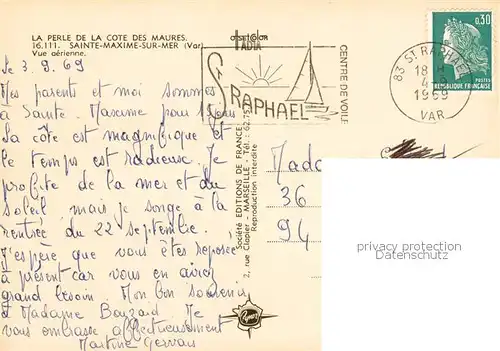 LA PERLE DE LA COTE DES MAURES.
16.111. SAINTE-MAXIME-SUR-MER (Var)
Vue aérienne.
le 3.9.69
Mes parents et moi sommes
à Sainte Maxime pour
La côte est magnifique et
le temps est radieuse. Je
profite de la mer et du
soleil mais je songe à la
rentrée du 22 septembre.
J'espère que vous êtes reposée
à présent car vous en aviez
grand besoin. Mon bon souvenir
à Madame Bouzard. Je
vous embrasse affectueusement
Martine Gervais
OFSETCOLOR
ST RAPHAEL
CENTRE DE VOILE
0,30
POSTES
REPUBLIQUE FRANÇAISE
83 ST RAPHAEL
18 H
4-9
1969
VAR
Société EDITIONS DE FRANCE
2, rue Clapier - MARSEILLE - Tél. : 62.75
Reproduction interdite
Mada
36
94
privacy protection
Datenschutz